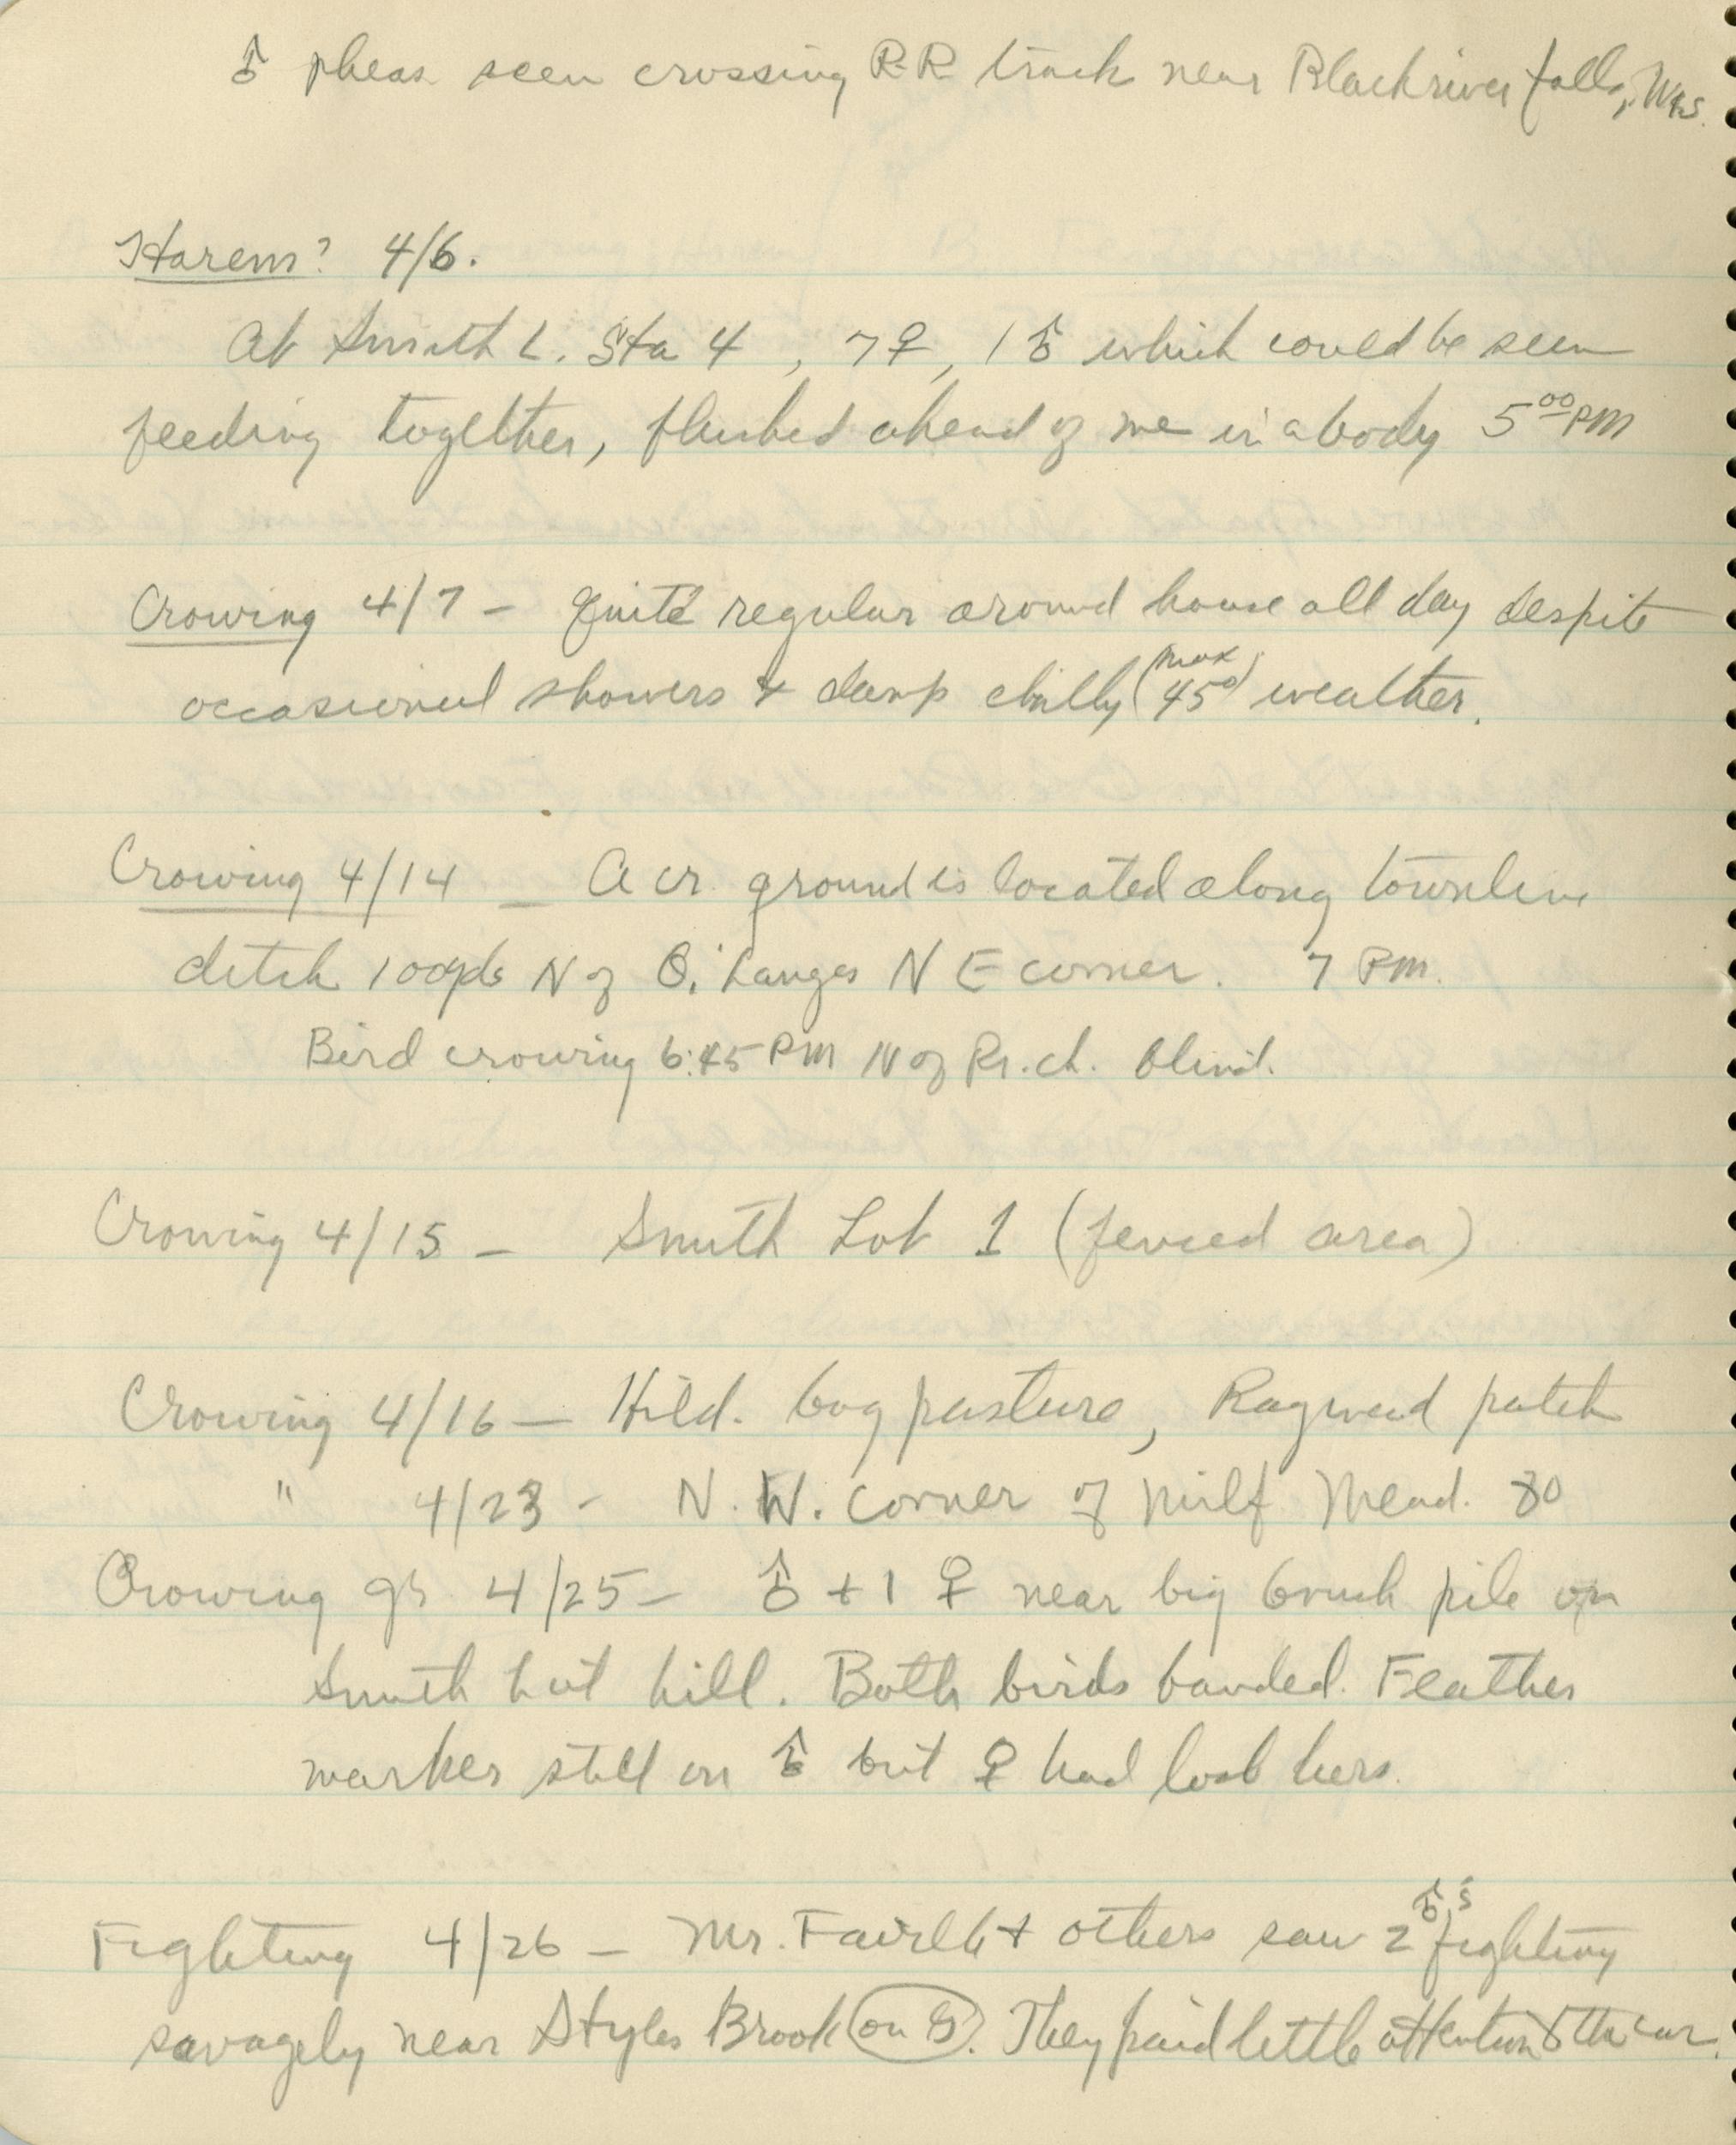 ♂ pheas. seen crossing R.R. track near Blackriver falls, Wis.
Harem? 4/6.
At Smith L. Sta 4, 7♀, 1♂ which could be seen
feeding together, flushed ahead of me in a body 5 00 PM
Crowing 4/7 - Quite regular around house all day despite
occasional showers & damp chilly (max 45°) weather.
Crowing 4/14 - A cr. ground is located along townline
ditch 100 yds N of O. Langes N E corner. 7 PM.
Bird crowing 6:45 PM N of Pr. ch. blind.
Crowing 4/15 - Smith Lot 1 (fenced area)
Crowing 4/16 - Hild. bog pasture, Ragweed patch
" 4/23 - N.W. Corner of Milf Mead. 80
Crowing gr 4/25 - ♂ + 1 ♀ near big brush pile on
Smith hill. Both birds banded. Feather
marker still on ♂ but ♀ had lost hers.
Fighting 4/26 - Mr. & others saw 2 ♂'s fighting
savagely near Styles Brook on . They paid little attention to the car.